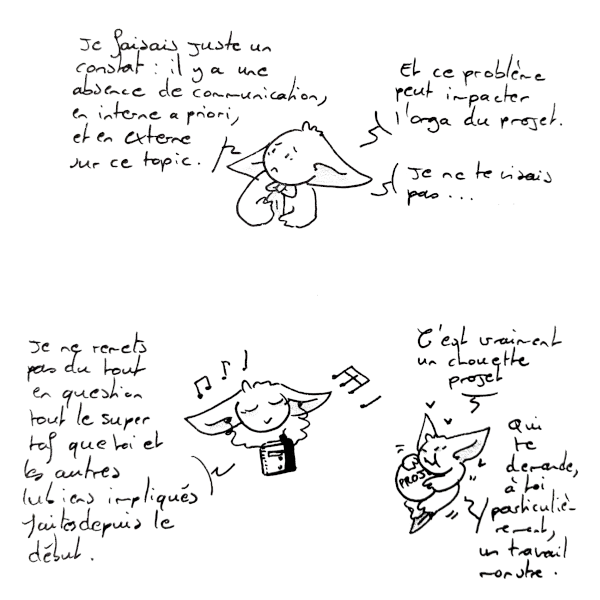 Je faisais juste un
constat : il y a une
absence de communication,
en interne a priori,
et en externe
sur ce topic.
Et ce problème
peut impacter
l'orga du projet.
Je ne te visais
pas...
Je ne remets
pas du tout
en question
tout le super
taf que toi et
les autres
lutiens impliqués
faites depuis le
début.
C'est vraiment
un chouette
projet
PROJ
Qui
te
demande,
à toi
particuliè-
rement,
un travail
monstre.